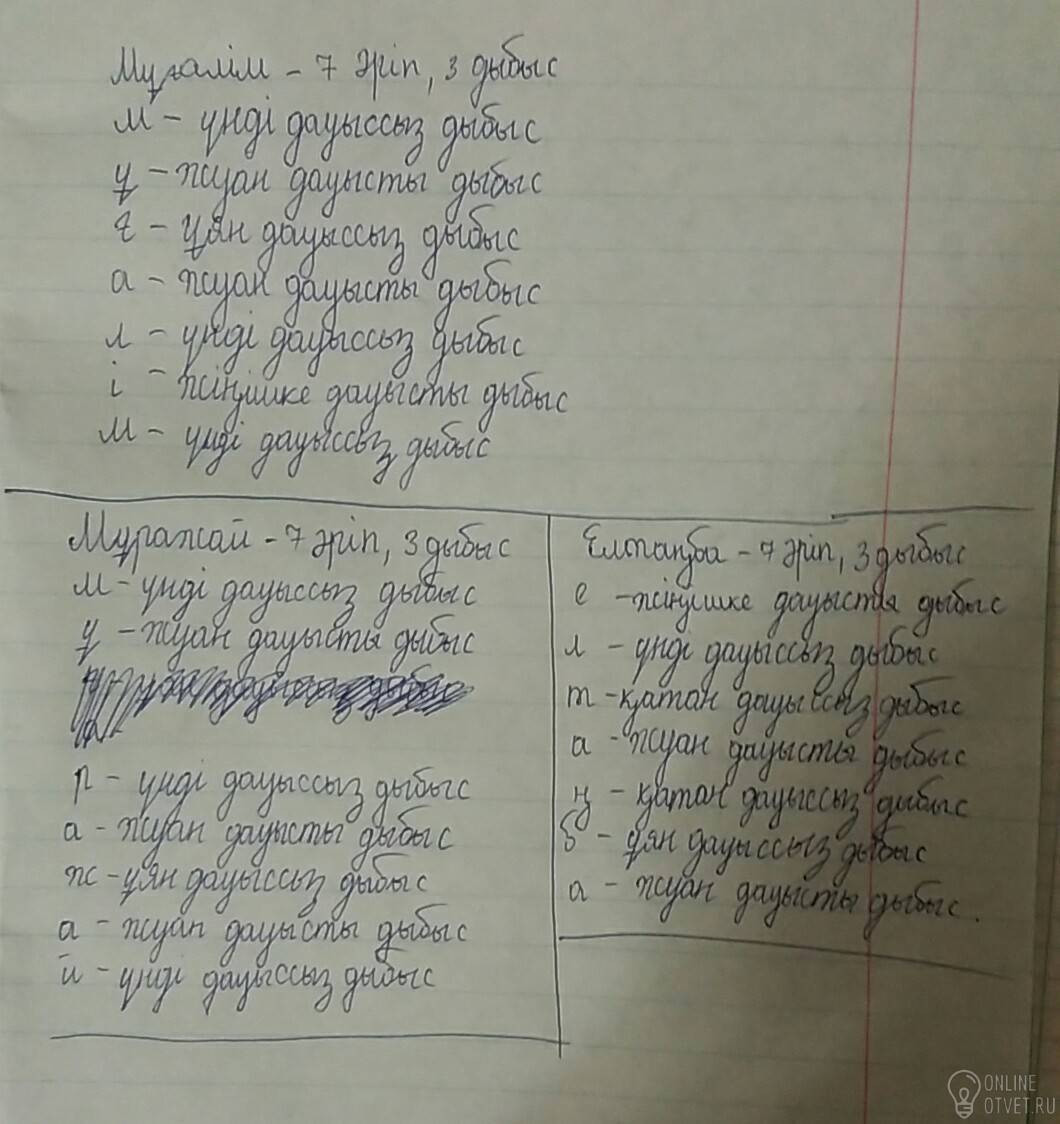 Мұғалім - 7 әріп, 3 дыбыс
м - үнді дауыссыз дыбыс
ұ - жуан дауысты дыбыс
ғ - ұян дауыссыз дыбыс
а - жуан дауысты дыбыс
л - үнді дауыссыз дыбыс
і - жіңішке дауысты дыбыс
м - үнді дауыссыз дыбыс
Мұражай - 7 әріп, 3 дыбыс
м - үнді дауыссыз дыбыс
ұ - жуан дауысты дыбыс
р - үнді дауыссыз дыбыс
а - жуан дауысты дыбыс
ж - ұян дауыссыз дыбыс
а - жуан дауысты дыбыс
й - үнді дауыссыз дыбыс
Елтаңба - 7 әріп, 3 дыбыс
е - жіңішке дауысты дыбыс
л - үнді дауыссыз дыбыс
т - қатан дауыссыз дыбыс
а - жуан дауысты дыбыс
ң - қатан дауыссыз дыбыс
б - ұян дауыссыз дыбыс
а - жуан дауысты дыбыс.
ONLINE
OTVET.RU